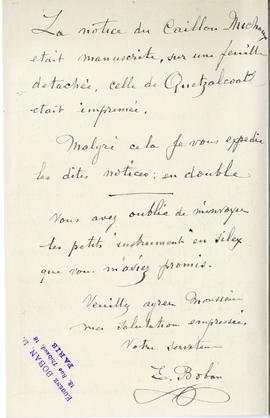 La notice du Caillou Michaux
etait manuscrite, sur une feuille
detachée, celle de Quetzalcoatl
etait imprimée.
Malgré cela Je vous expedie
les dites notices: en double
Vous avez oublié de m'envoyer
les petits instrument en silex
que vous m'aviez promis.
Veuillez agreer Monsieur
mes salutation empressées
Votre serviteur
E. Boban
EUGÈNE BOBAN, D.
18, Rue Thibaud, 18
PARIS